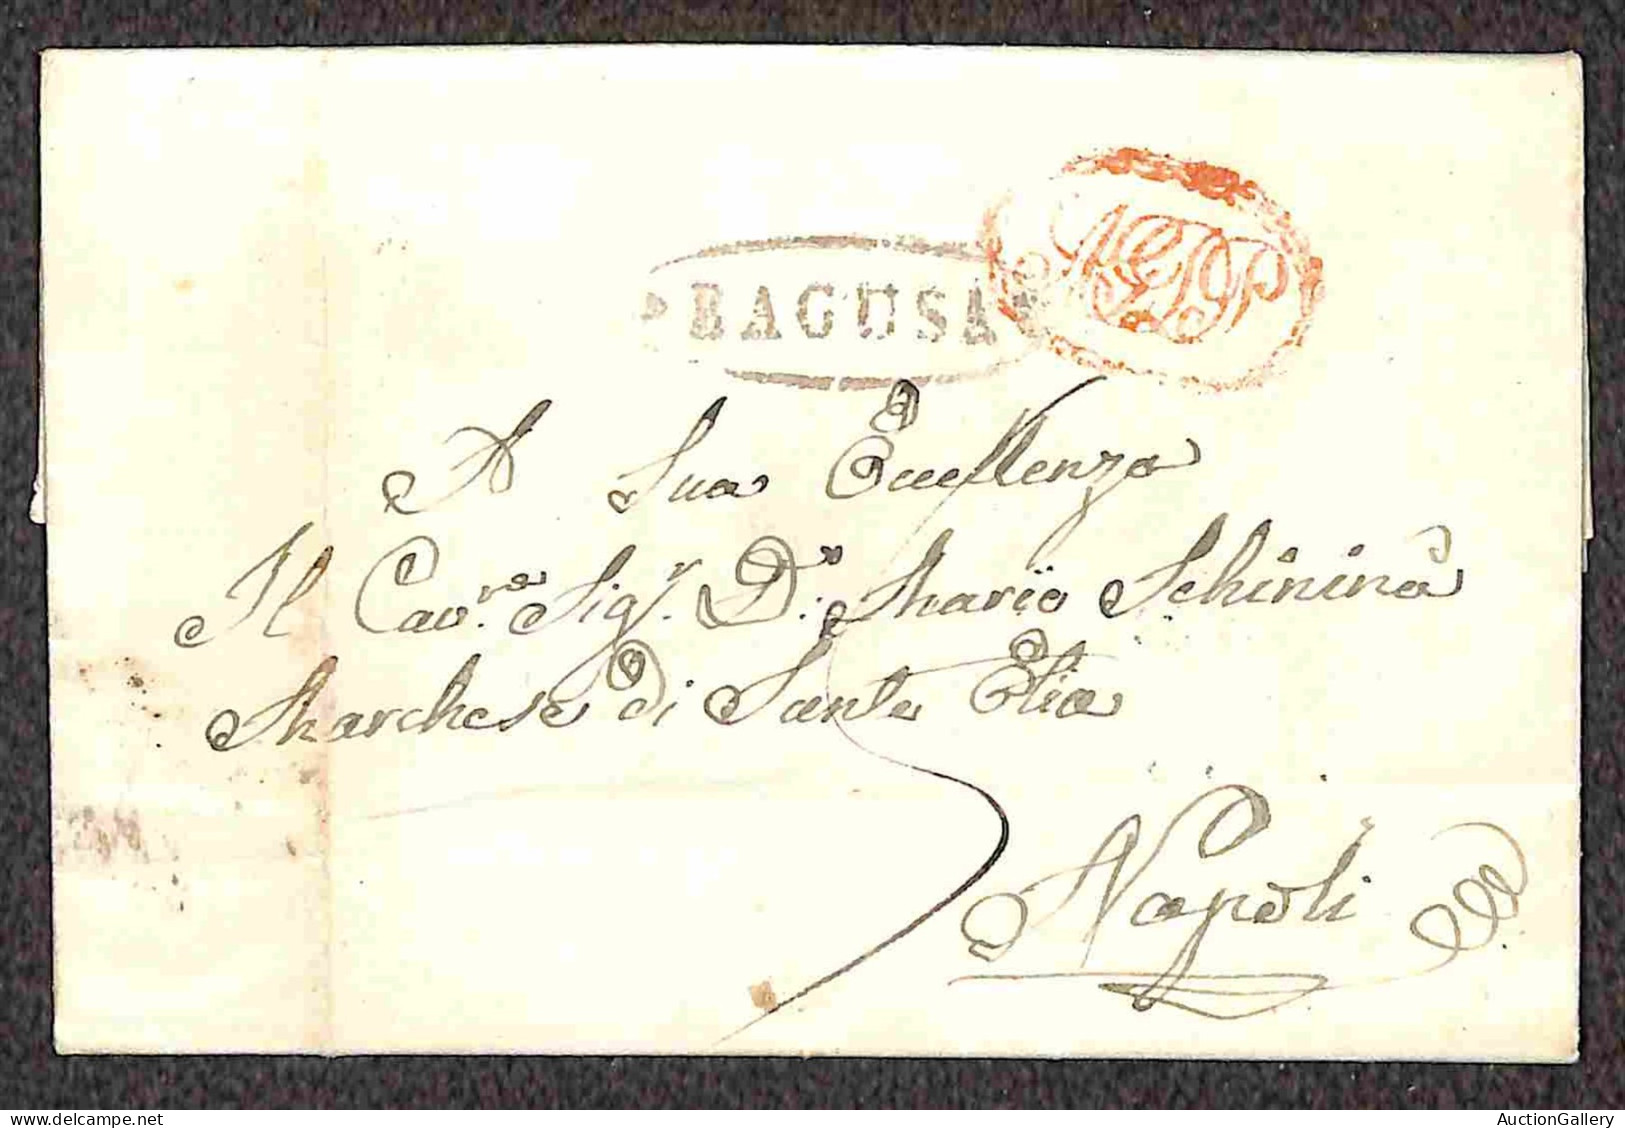 RAGUSA
A Sua Eccellenza
Il Cav.re Sig.r D.n Mario Schininà
Marchese di Sant Elia
Napoli
AuctionGallery